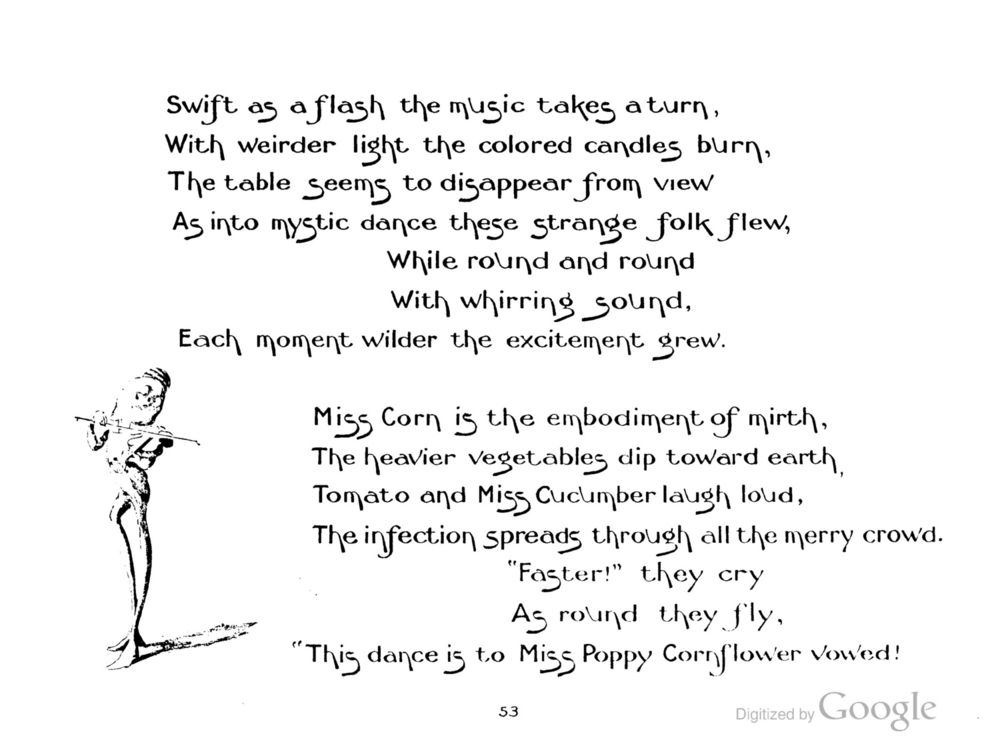 Swift as a flash the music takes a turn,
With weirder light the colored candles burn,
The table seems to disappear from view
As into mystic dance these strange folk flew,
While round and round
With whirring sound,
Each moment wilder the excitement grew.
Miss Corn is the embodiment of mirth,
The heavier vegetables dip toward earth,
Tomato and Miss Cucumber laugh loud,
The infection spreads through all the merry crowd.
"Faster!" they cry
As round they fly,
"This dance is to Miss Poppy Cornflower vowed!
53
Digitized by Google